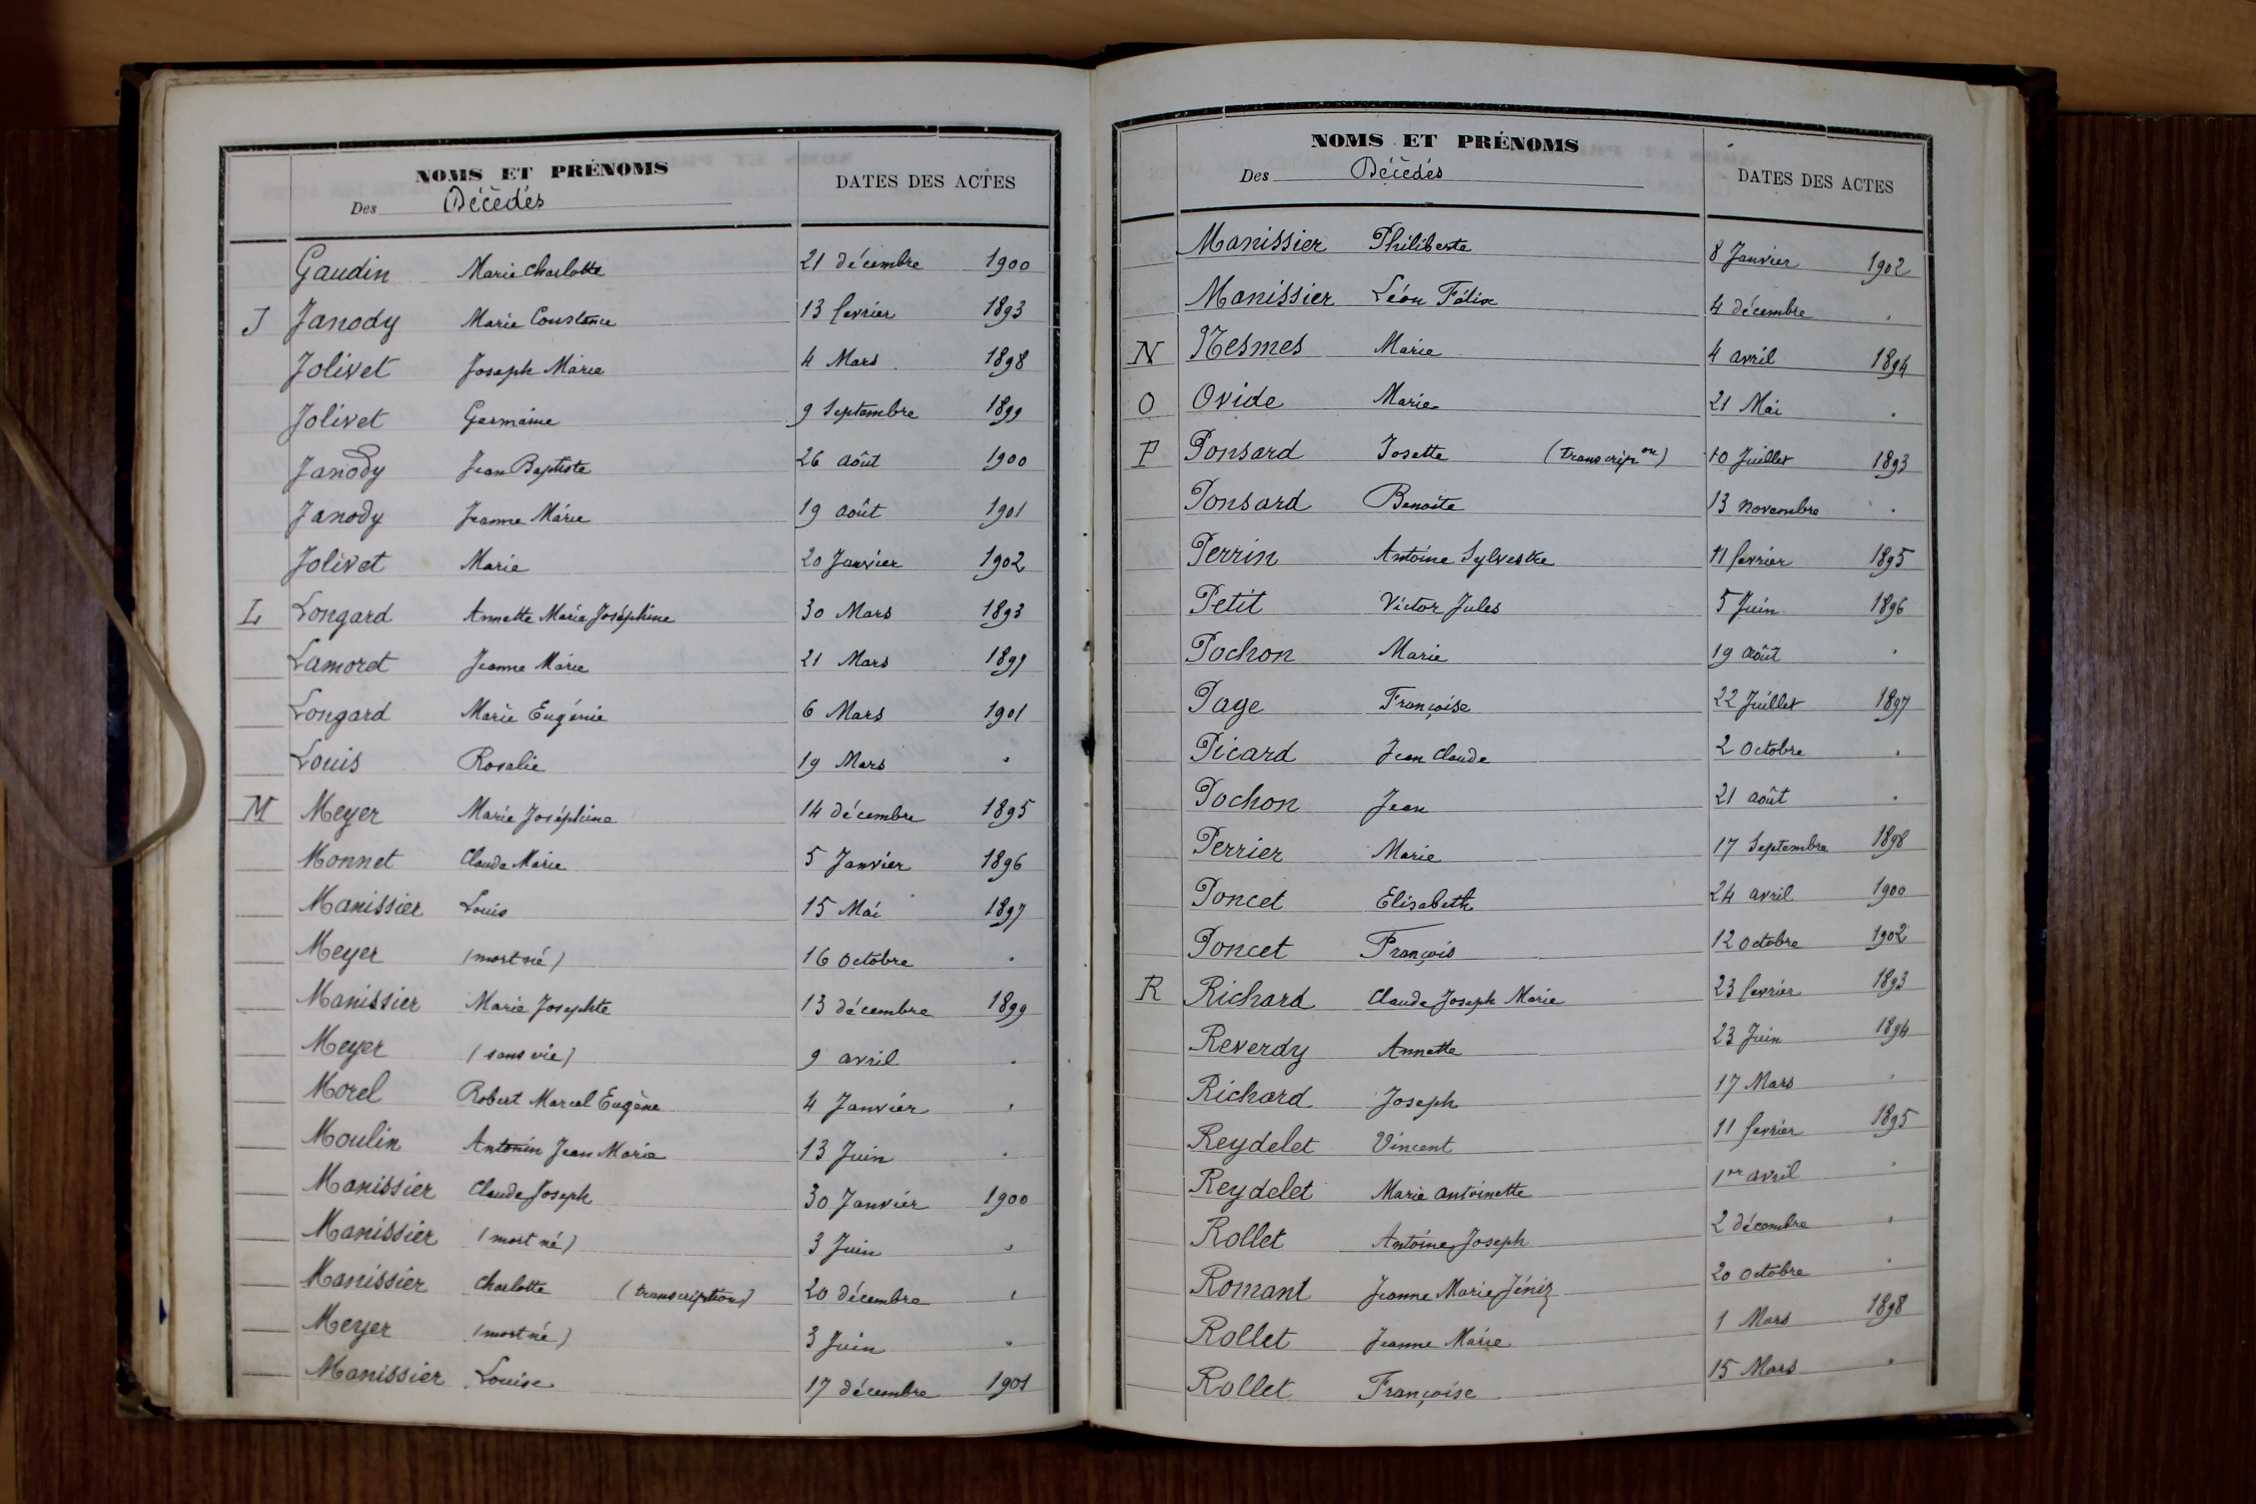 NOMS ET PRÉNOMS
Des Décédés
DATES DES ACTES
Gaudin Marie Charlotte 21 décembre 1900
J Janody Marie Constance 13 fevrier 1893
Jolivet Joseph Marie 4 Mars 1898
Jolivet Germaine 9 Septembre 1899
Janody Jean Baptiste 26 Août 1900
Janody Jeanne Marie 19 Août 1901
Jolivet Marie 20 Janvier 1902
L Longard Annette Marie Joséphine 30 Mars 1893
Lamoret Jeanne Marie 21 Mars 1899
Longard Marie Eugénie 6 Mars 1901
Louis Rosalie 19 Mars "
M Meyer Marie Joséphine 14 décembre 1895
Monnet Claude Marie 5 Janvier 1896
Manissier Louis 15 Mai 1897
Meyer (mort né) 16 Octobre "
Manissier Marie Josephte 13 décembre 1899
Meyer (sans vie) 9 avril "
Morel Robert Marcel Eugène 4 Janvier "
Moulin Antonin Jean Marie 13 Juin "
Manissier Claude Joseph 30 Janvier 1900
Manissier (mort né) 3 Juin "
Manissier Charlotte (transcription) 20 décembre "
Meyer (mort né) 3 Juin "
Manissier Louise 17 décembre 1901
NOMS ET PRÉNOMS
Des Décédés
DATES DES ACTES
Manissier Philiberte 8 Janvier 1902
Manissier Léon Félix 4 décembre "
N Nesmes Marie 4 avril 1894
O Ovide Marie 21 Mai "
P Ponsard Josette (transcripon) 10 Juillet 1893
Ponsard Benoite 13 novembre "
Perrin Antoine Sylvestre 11 fevrier 1895
Petit Victor Jules 5 Juin 1896
Pochon Marie 19 Août "
Page Françoise 22 Juillet 1897
Picard Jean Claude 2 Octobre "
Pochon Jean 21 Août "
Perrier Marie 17 Septembre 1898
Poncet Elisabeth 24 avril 1900
Poncet François 12 Octobre 1902
R Richard Claude Joseph Marie 23 fevrier 1893
Reverdy Annette 23 Juin 1894
Richard Joseph 17 Mars "
Reydelet Vincent 11 fevrier 1895
Reydelet Marie Antoinette 1er avril "
Rollet Antoine Joseph 2 décembre "
Romant Jeanne Marie Jéniz 20 Octobre "
Rollet Jeanne Marie 1 Mars 1898
Rollet Françoise 15 Mars "